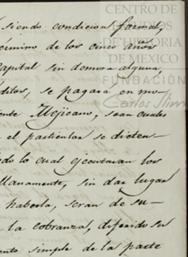 CENTRO DE
ESTUDIOS
DE HISTORIA
DE MEXICO
FUNDACIÓN
Carlos Slim
siendo condicion formal,
término de los cinco años
Capital sin demora alguna,
ditos, se pagará en mo-
ente Mejicano, sean cuales
el particular se dicten
do lo cual ejecutaran los
llanamente, sin dar lugar
haberla, seran de su
la cobranza, diferido su
ento simple de la parte